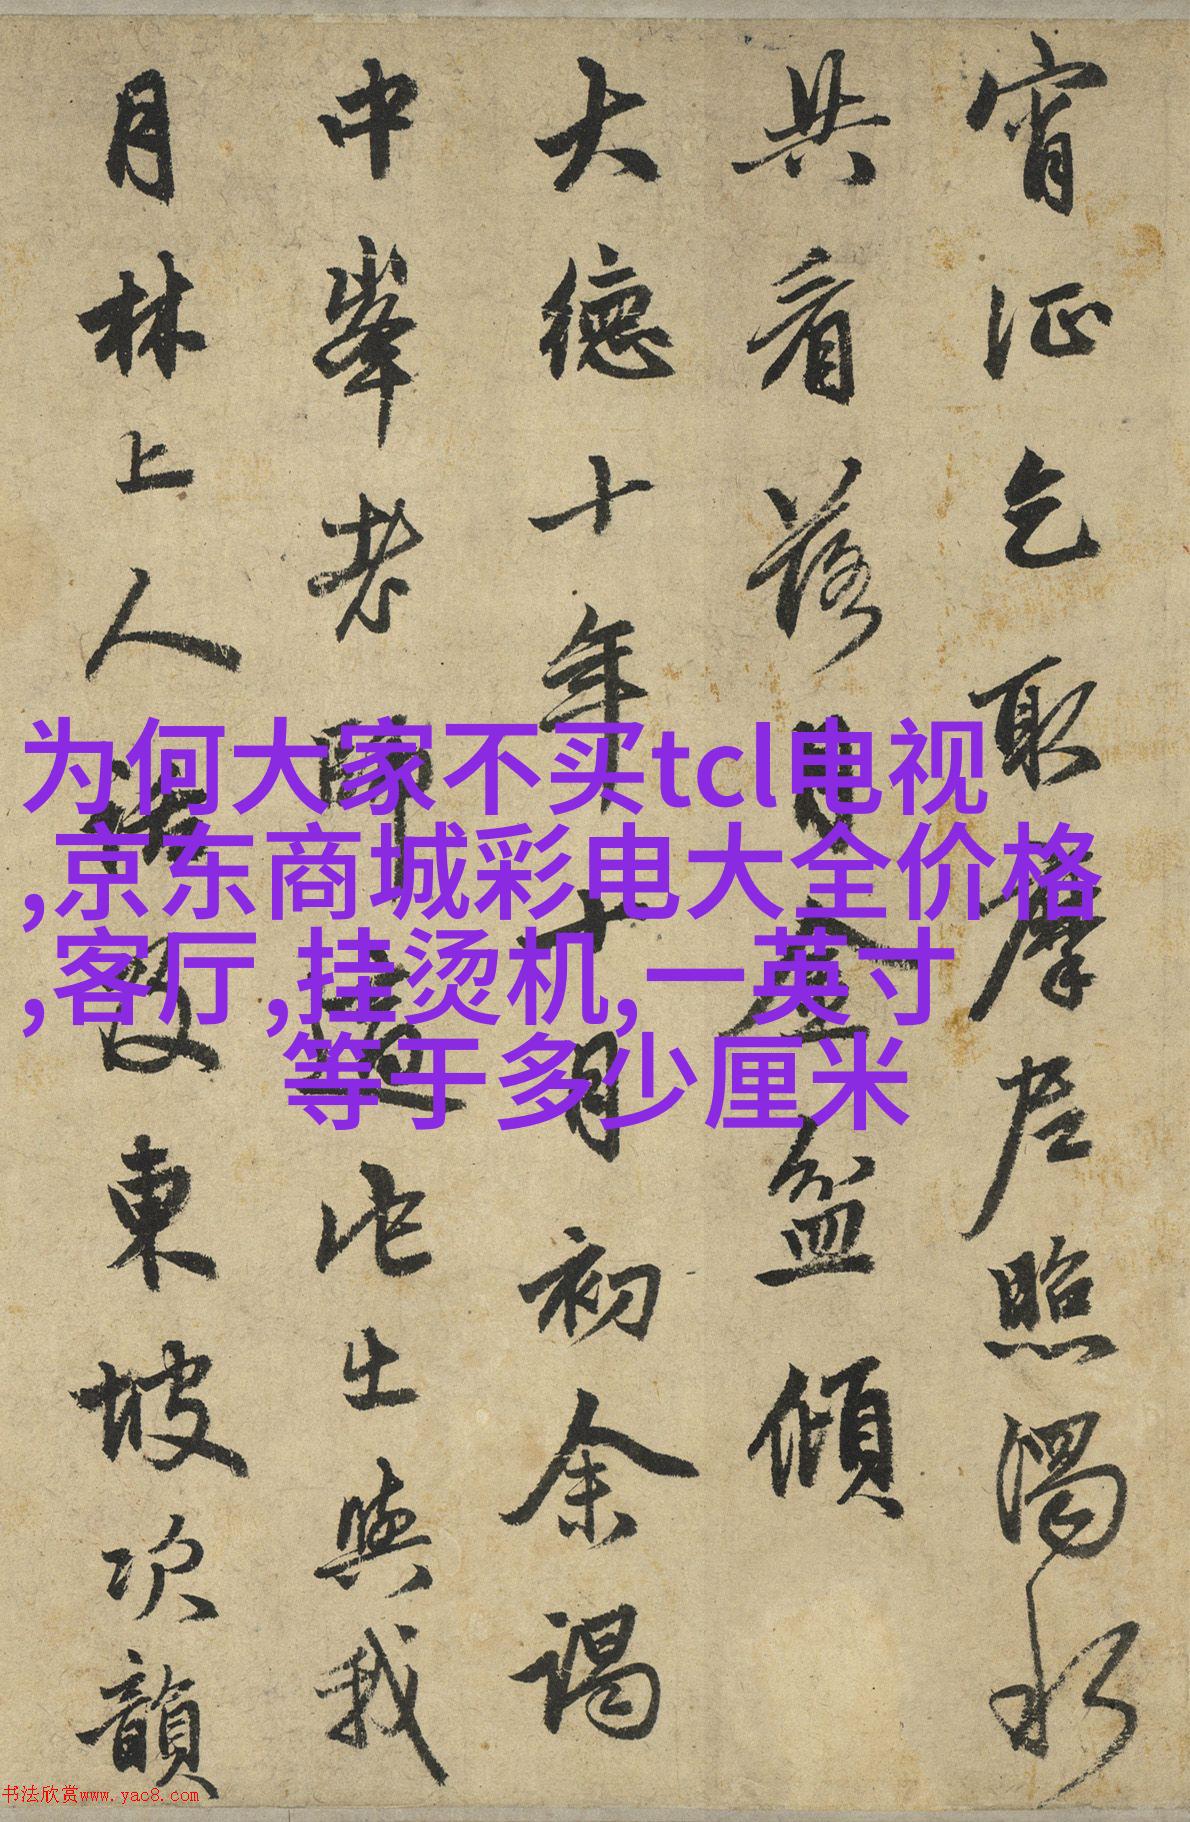 宵征乞取摩尼照濁水
共看落月金盆傾
大德十年十月初余謁
中峯老師他出與我
月林上人及東坡次韻
为何大家不买tcl电视
,京东商城彩电大全价格
,客厅,挂烫机,一英寸
等于多少厘米
书法欣赏www.yac8.com